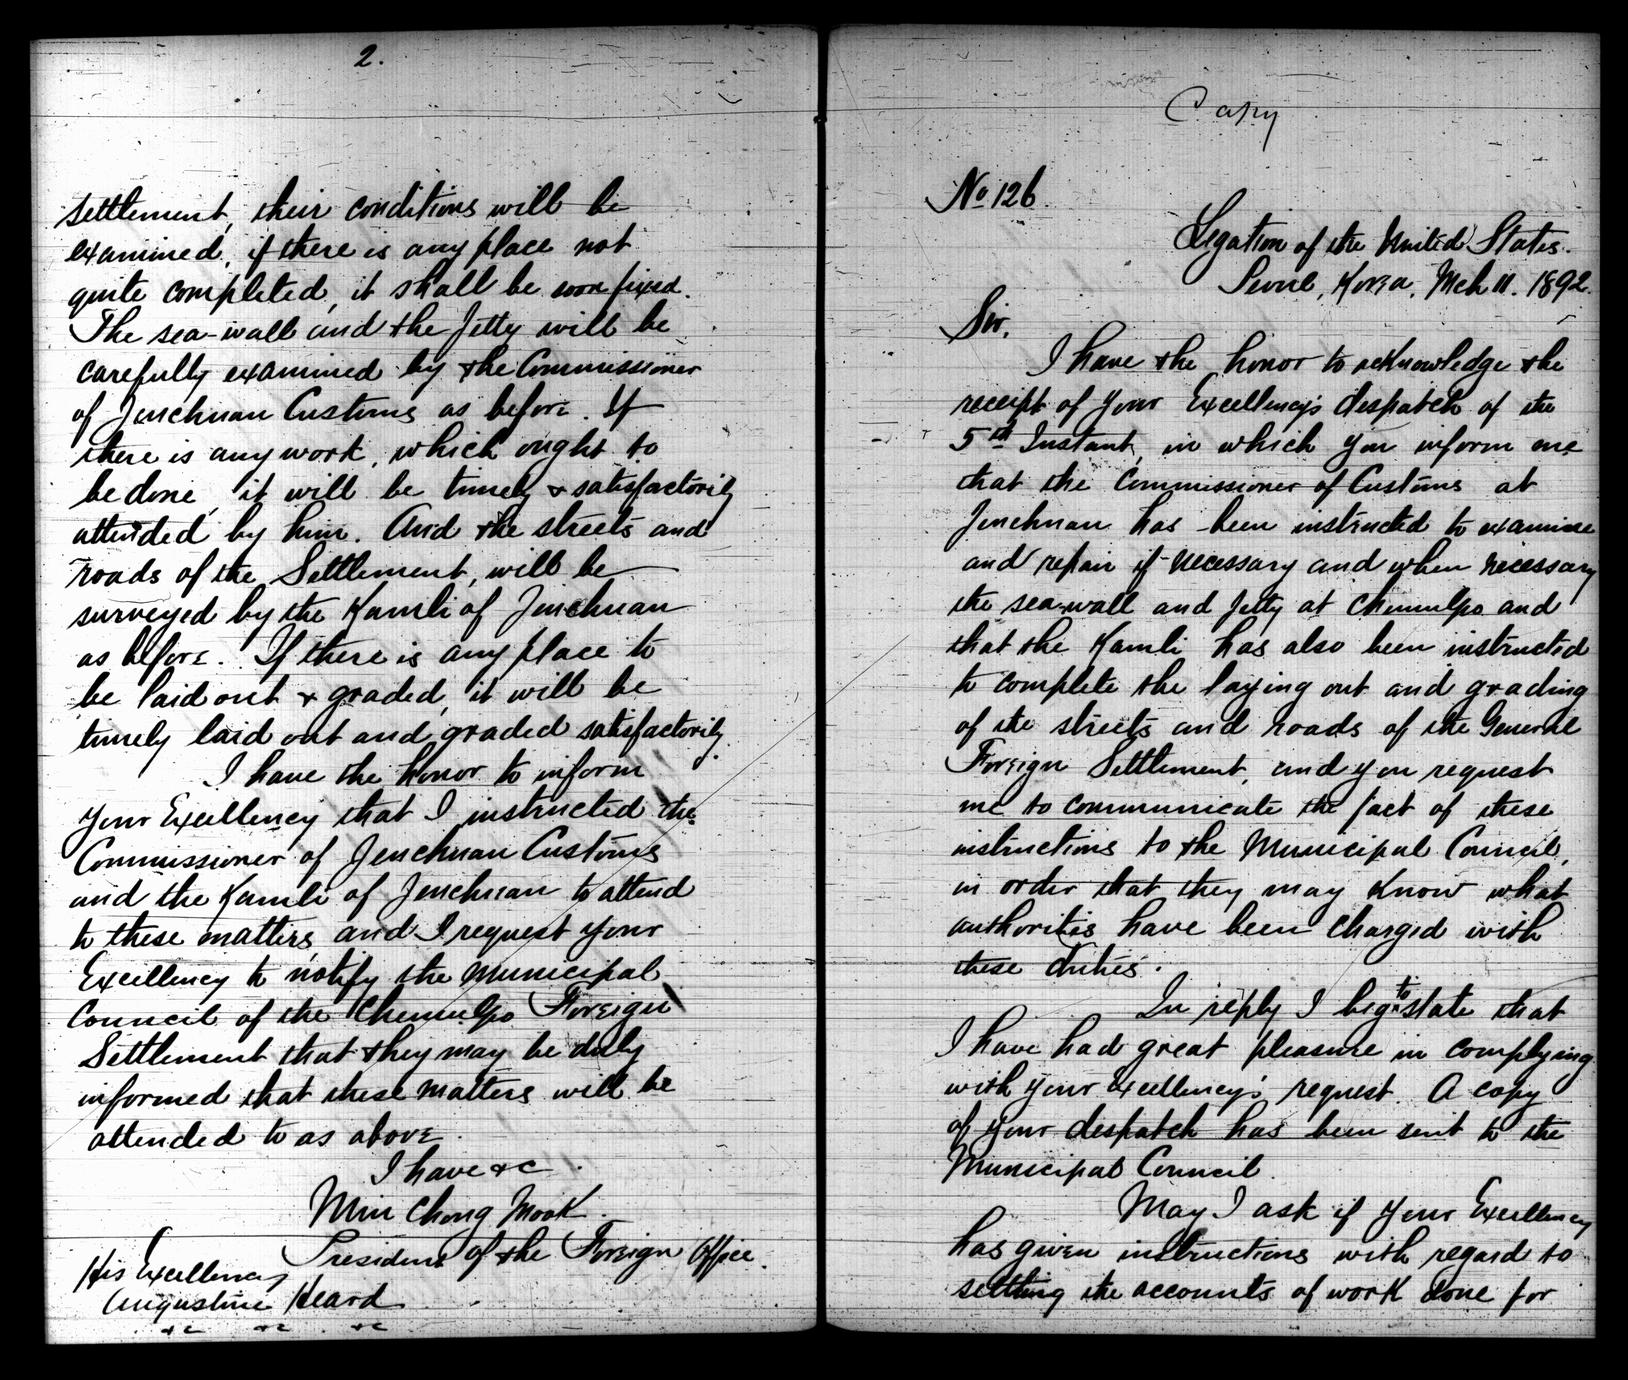 2.
settlement, their conditions will be
examined, if there is any place not
quite completed, it shall be soon fixed.
The sea-wall and the Jetty will be
carefully examined by the Commissioner
of Jenchuan Customs as before. If
there is any work, which ought to
be done, it will be timely & satisfactorily
attended by him. And the streets and
roads of the Settlement, will be
surveyed by the Kamli of Jenchuan
as before. If there is any place to
be laid out & graded, it will be
timely laid out and graded satisfactorily.
I have the honor to inform
Your Excellency that I instructed the
Commissioner of Jenchuan Customs
and the Kamli of Jenchuan to attend
to these matters, and I request Your
Excellency to notify the Municipal
Council of the Chemulpo Foreign
Settlement that they may be duly
informed that these matters will be
attended to as above.
I have &c.
Min Chong Mook.
President of the Foreign Office.
His Excellency
Augustine Heard
&c &c &c
Copy
No 126.
Legation of the United States.
Seoul, Korea, Mch 11. 1892.
Sir,
I have the honor to acknowledge the
receipt of Your Excellency's despatch of the
5th Instant, in which you inform me
that the Commissioner of Customs at
Jenchuan has been instructed to examine
and repair if necessary and when necessary
the sea-wall and Jetty at Chemulpo and
that the Kamli has also been instructed
to complete the laying out and grading
of the streets and roads of the General
Foreign Settlement, and you request
me to communicate the fact of these
instructions to the Municipal Council,
in order that they may know what
authorities have been charged with
these duties.
In reply I beg to state that
I have had great pleasure in complying
with Your Excellency's request. A copy
of your despatch has been sent to the
Municipal Council.
May I ask if Your Excellency
has given instructions with regard to
settling the accounts of work done for